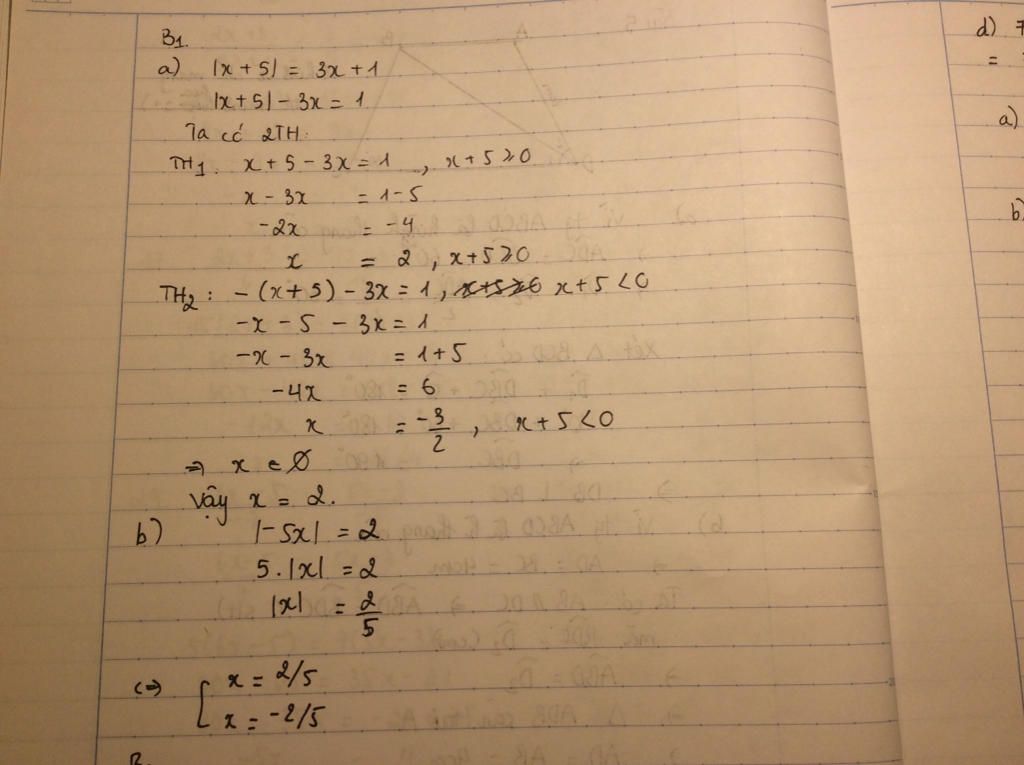 B1.
a) |x + 5| = 3x + 1
|x+5| - 3x = 1
Ta có 2TH:
TH1. x + 5 - 3x = 1 , x + 5 ⩾ 0
x - 3x = 1 - 5
-2x = -4
x = 2 , x + 5 ⩾ 0
TH2 : - (x + 5) - 3x = 1 , x + 5 < 0
-x - 5 - 3x = 1
-x - 3x = 1 + 5
-4x = 6
x = -3/2 , x + 5 < 0
⇒ x ∈ ∅
Vậy x = 2.
b) |-5x| = 2
5.|x| = 2
|x| = 2/5
⇔ [ x = 2/5
x = -2/5
d) 7
=
a)
b)